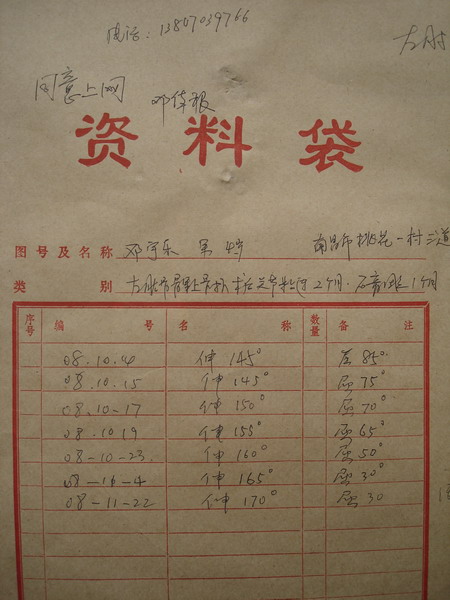 电话: 13807039766
左肘
同意上网
邓
资料袋
图号及名称 邓宇乐 男 4岁 南昌市桃花一村三道
类别 左肘 2个月. 石膏固定1个月
序号 编号 名称 数量 备注
08.10.4 伸145° 屈85°
08.10.15 伸145° 屈75°
08.10-17 伸150° 屈70°
08.10 19 伸155° 屈65°
08-10-23. 伸160° 屈50°
08-11-4 伸165° 屈30°
08-11-22 伸170° 屈30